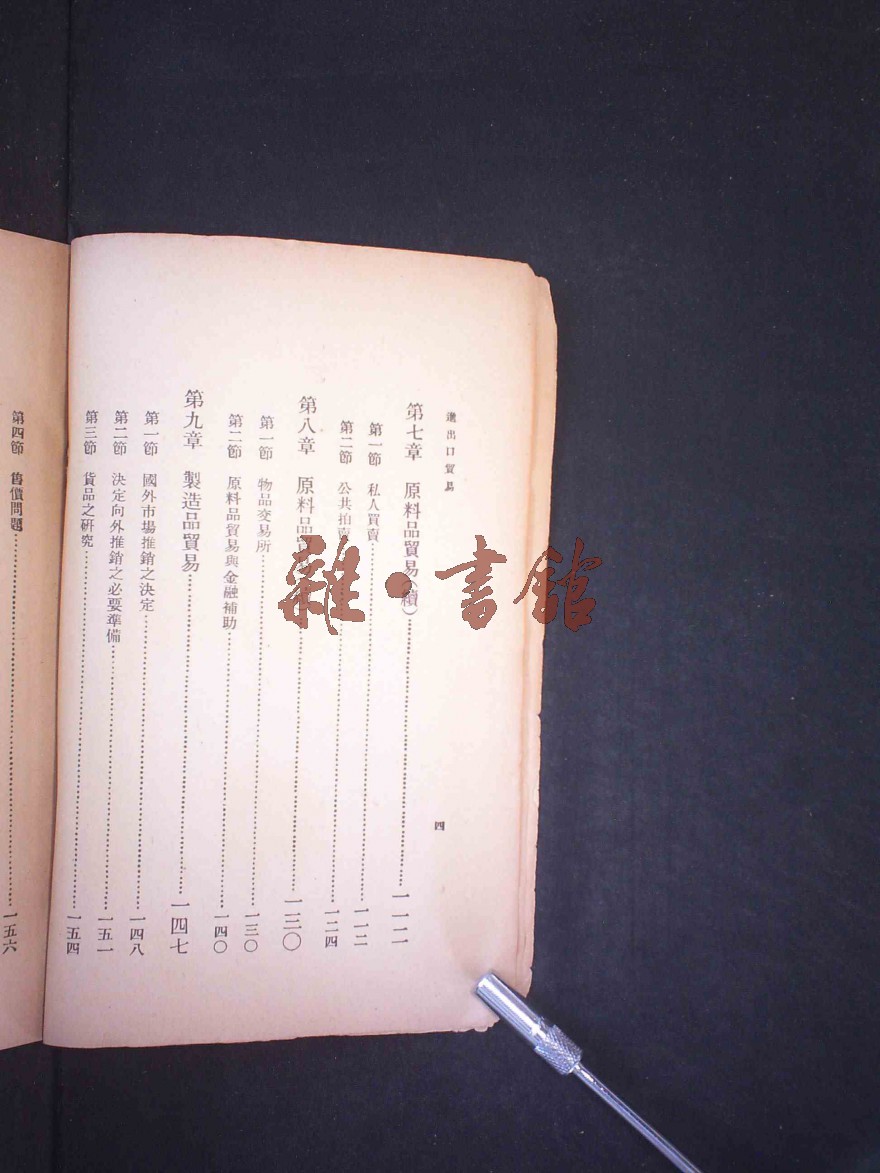 進出口貿易
四
第七章 原料品貿易(續)……一一二
第一節 私人買賣……一一二
第二節 公共拍賣……一二四
第八章 原料品……一三〇
第一節 物品交易所……一三〇
第二節 原料品貿易與金融補助……一四〇
第九章 製造品貿易……一四七
第一節 國外市場推銷之決定……一四八
第二節 決定向外推銷之必要準備……一五一
第三節 貨品之研究……一五四
第四節 售價問題……一五六
雜·書館